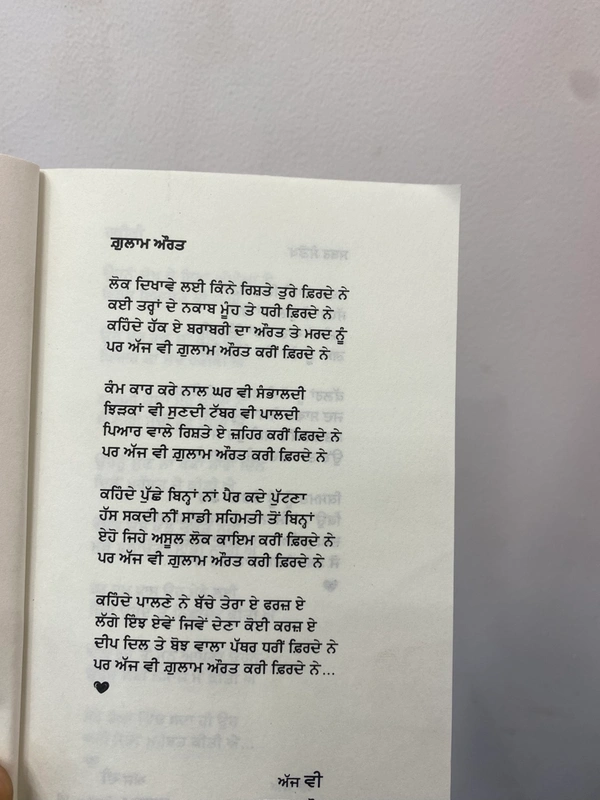 ਗ਼ੁਲਾਮ ਔਰਤ
ਲੋਕ ਦਿਖਾਵੇ ਲਈ ਕਿੰਨੇ ਰਿਸ਼ਤੇ ਤੁਰੇ ਫ਼ਿਰਦੇ ਨੇ
ਕਈ ਤਰ੍ਹਾਂ ਦੇ ਨਕਾਬ ਮੂੰਹ ਤੇ ਧਰੀ ਫ਼ਿਰਦੇ ਨੇ
ਕਹਿੰਦੇ ਹੱਕ ਏ ਬਰਾਬਰੀ ਦਾ ਔਰਤ ਤੇ ਮਰਦ ਨੂੰ
ਪਰ ਅੱਜ ਵੀ ਗ਼ੁਲਾਮ ਔਰਤ ਕਰੀਂ ਫ਼ਿਰਦੇ ਨੇ
ਕੰਮ ਕਾਰ ਕਰੇ ਨਾਲ ਘਰ ਵੀ ਸੰਭਾਲਦੀ
ਝਿੜਕਾਂ ਵੀ ਸੁਣਦੀ ਟੱਬਰ ਵੀ ਪਾਲਦੀ
ਪਿਆਰ ਵਾਲੇ ਰਿਸ਼ਤੇ ਏ ਜ਼ਹਿਰ ਕਰੀਂ ਫ਼ਿਰਦੇ ਨੇ
ਪਰ ਅੱਜ ਵੀ ਗ਼ੁਲਾਮ ਔਰਤ ਕਰੀ ਫ਼ਿਰਦੇ ਨੇ
ਕਹਿੰਦੇ ਪੁੱਛੇ ਬਿਨ੍ਹਾਂ ਨਾਂ ਪੈਰ ਕਦੇ ਪੁੱਟਣਾ
ਹੱਸ ਸਕਦੀ ਨੀਂ ਸਾਡੀ ਸਹਿਮਤੀ ਤੋਂ ਬਿਨ੍ਹਾਂ
ਏਹੋ ਜਿਹੇ ਅਸੂਲ ਲੋਕ ਕਾਇਮ ਕਰੀਂ ਫ਼ਿਰਦੇ ਨੇ
ਪਰ ਅੱਜ ਵੀ ਗ਼ੁਲਾਮ ਔਰਤ ਕਰੀ ਫ਼ਿਰਦੇ ਨੇ
ਕਹਿੰਦੇ ਪਾਲਣੇ ਨੇ ਬੱਚੇ ਤੇਰਾ ਏ ਫਰਜ਼ ਏ
ਲੱਗੇ ਇੰਝ ਏਵੇਂ ਜਿਵੇਂ ਦੇਣਾ ਕੋਈ ਕਰਜ਼ ਏ
ਦੀਪ ਦਿਲ ਤੇ ਬੋਝ ਵਾਲਾ ਪੱਥਰ ਧਰੀਂ ਫ਼ਿਰਦੇ ਨੇ
ਪਰ ਅੱਜ ਵੀ ਗ਼ੁਲਾਮ ਔਰਤ ਕਰੀ ਫ਼ਿਰਦੇ ਨੇ...
ਅੱਜ ਵੀ